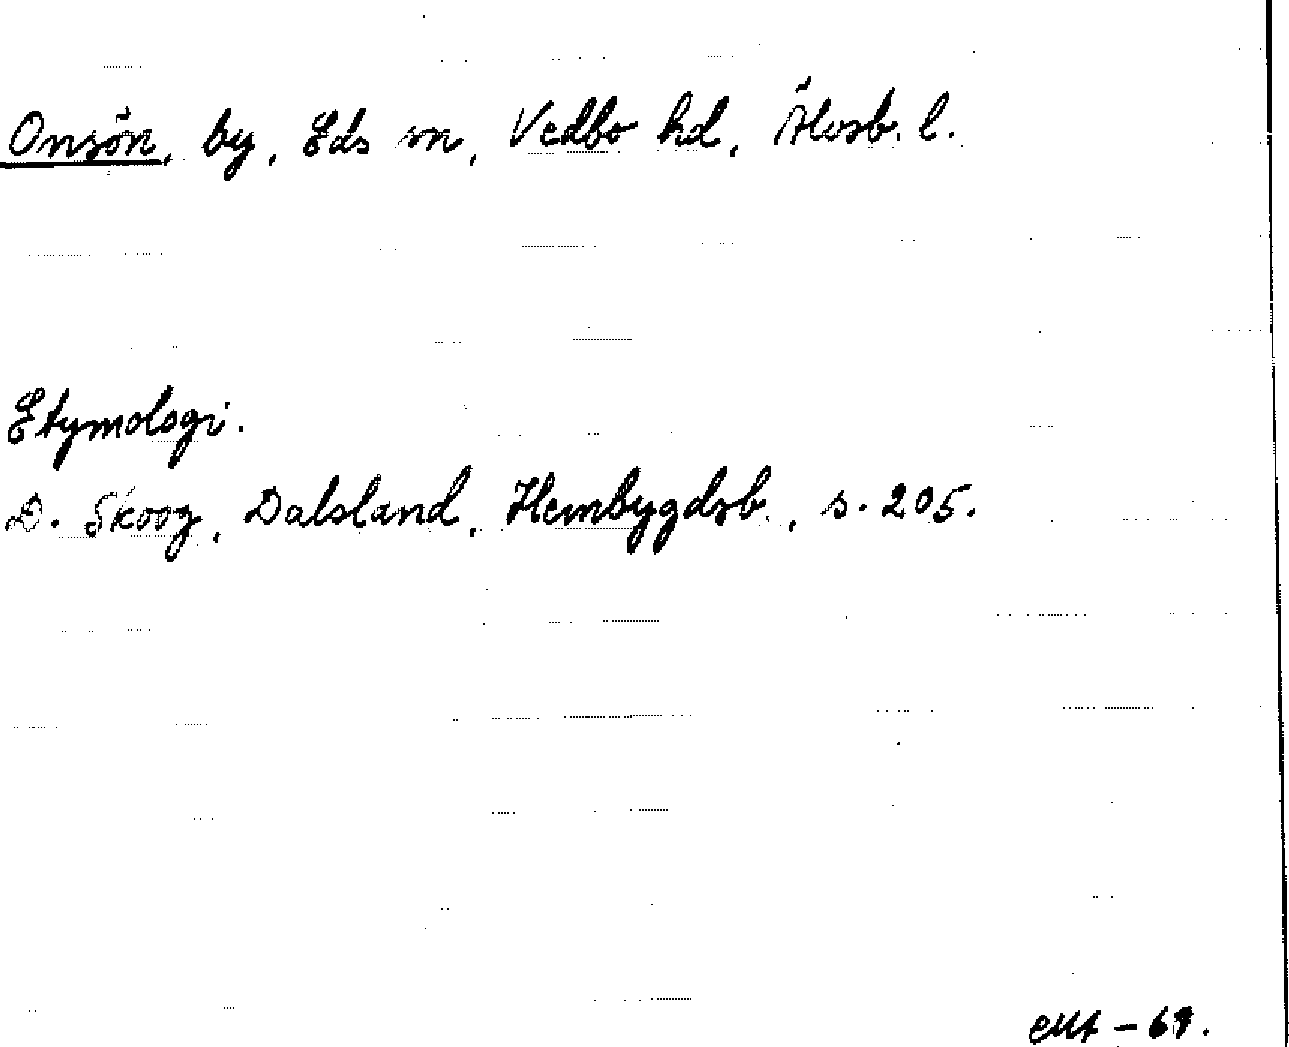 Onsön, by, Eds sn, Vedbo hd, Älvsb. l.
Etymologi.
D. Skoog, Dalsland, Hembygdsb., s. 205.